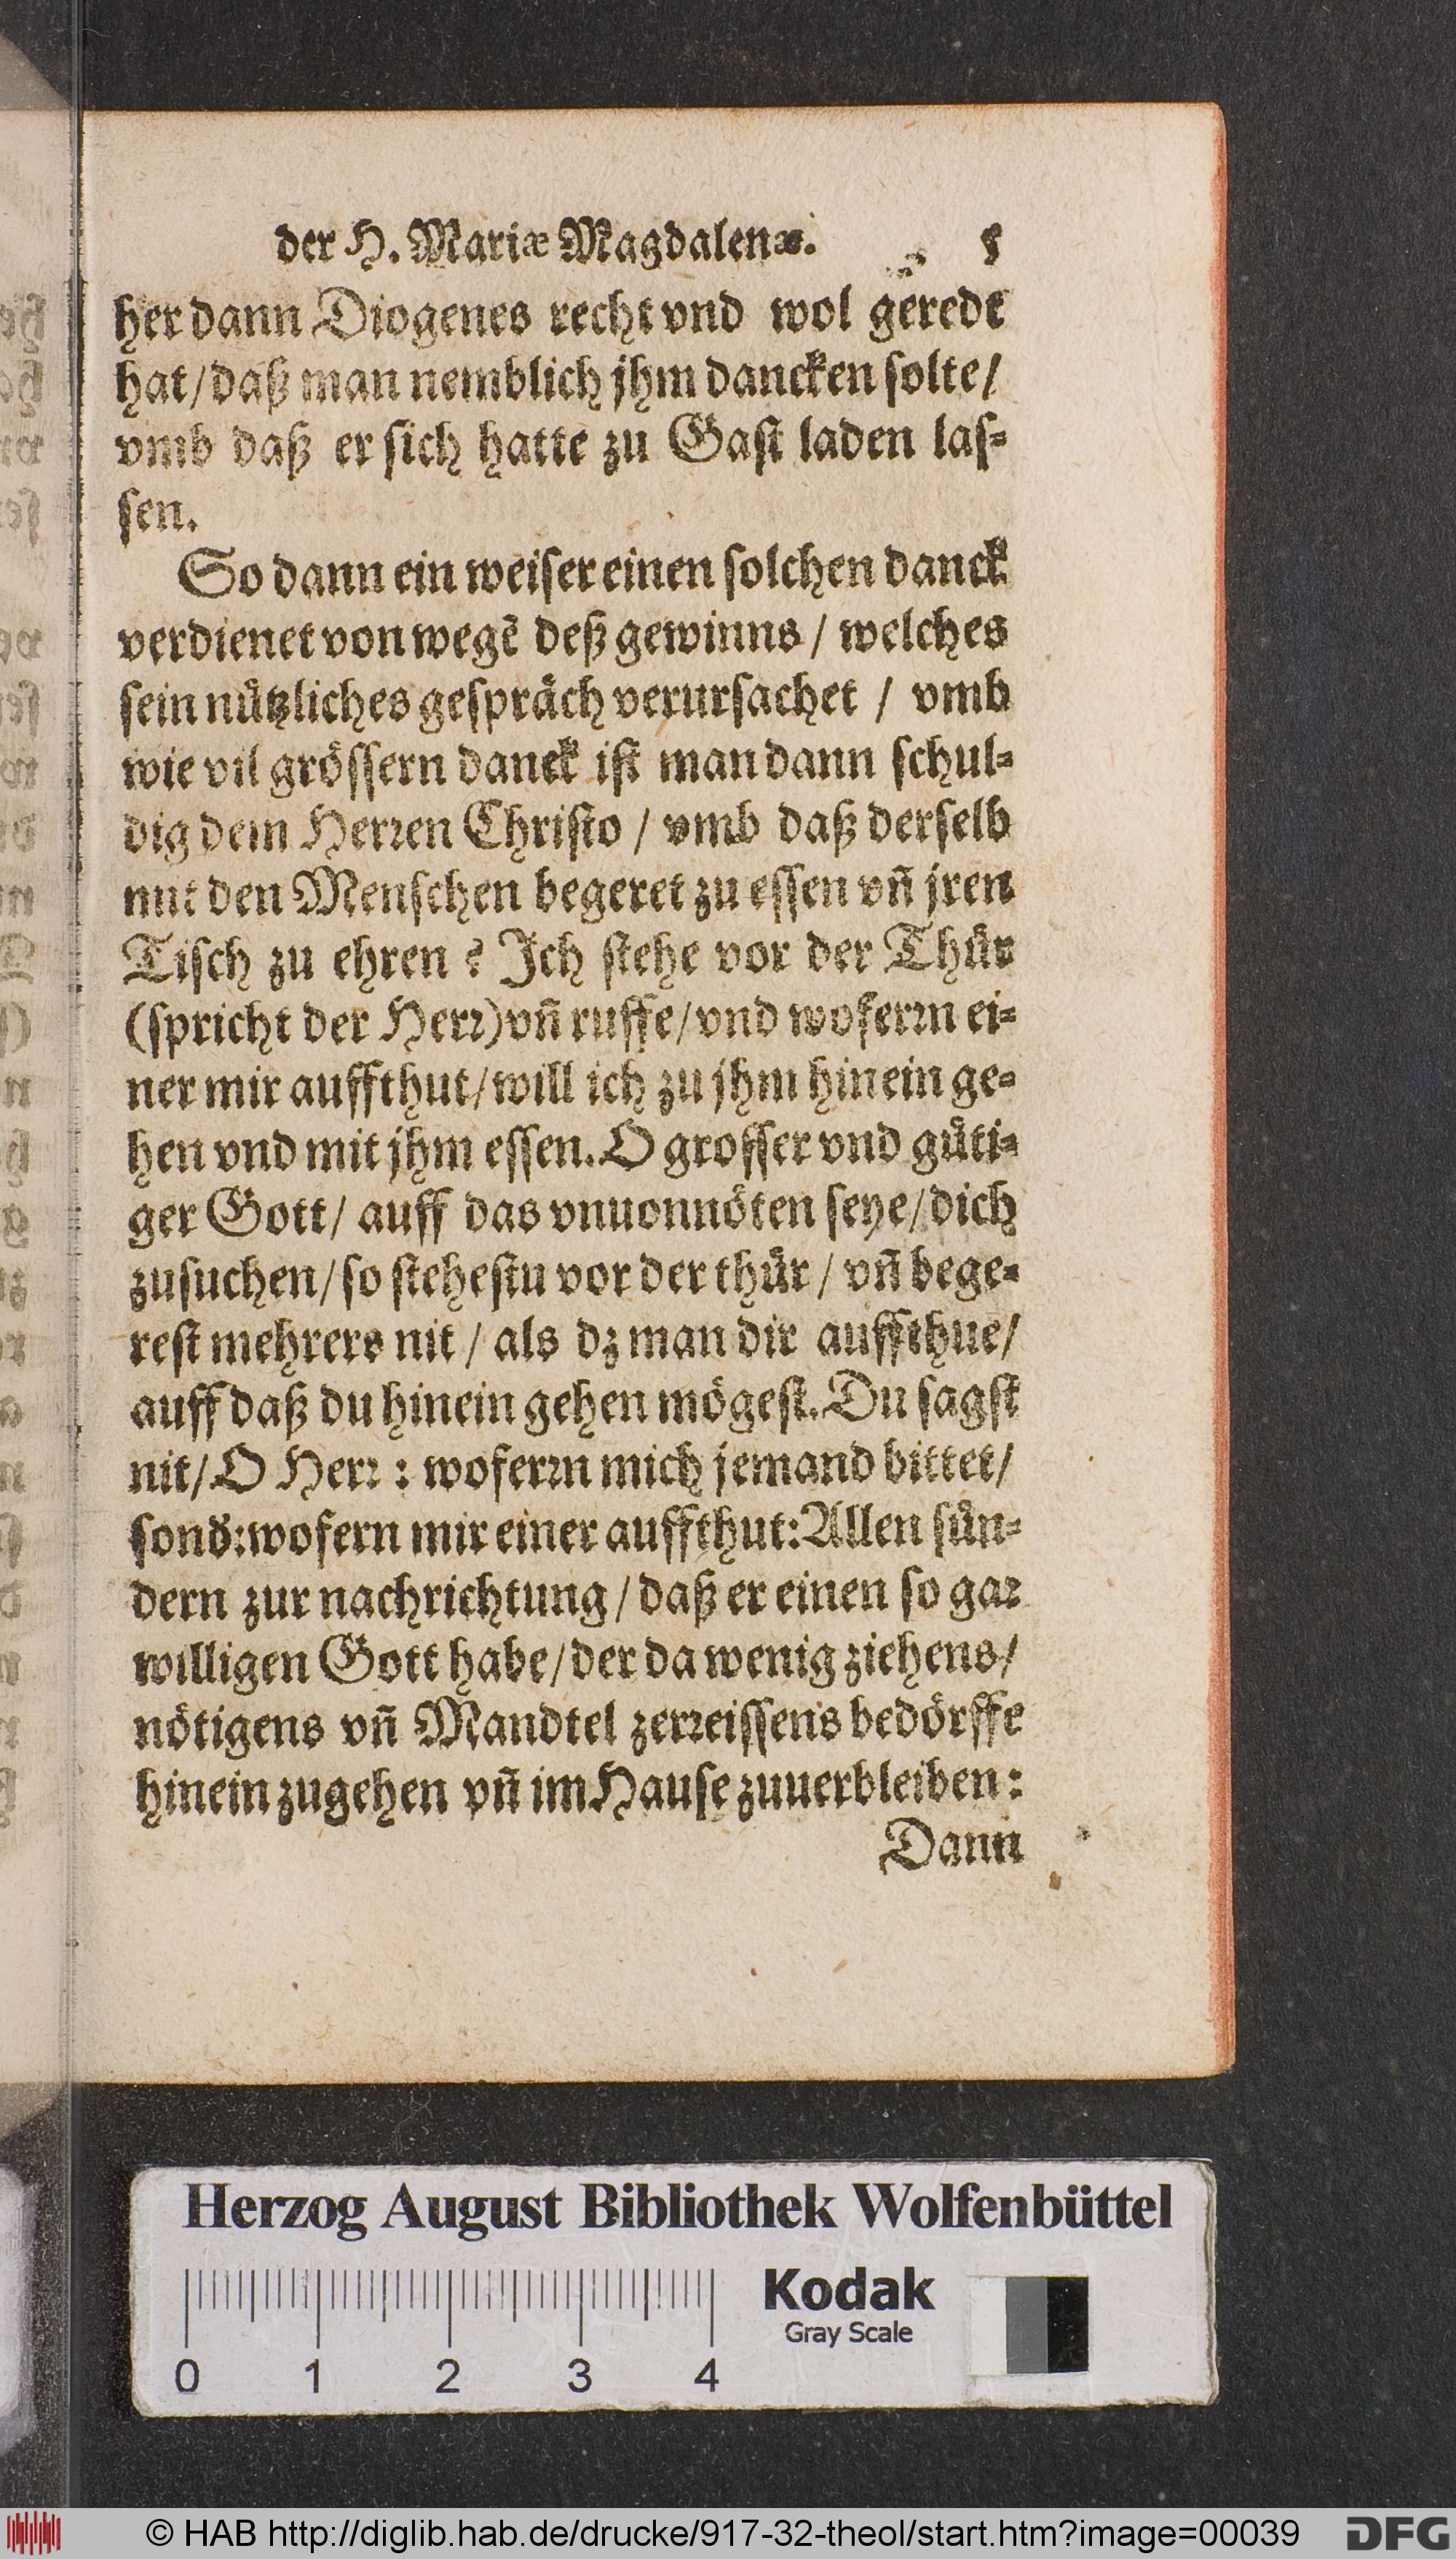 der H. Mariæ Magdalenæ. 5
her dann Diogenes recht vnd wol geredt
hat/daß man nemblich jhm dancken solte/
vmb daß er sich hatte zu Gast laden las-
sen.
So dann ein weiser einen solchen danck
verdienet von wegẽ deß gewinns / welches
sein nützliches gespräch verursachet / vmb
wie vil grössern danck ist man dann schul-
dig dem Herren Christo / vmb daß derselb
mit den Menschen begeret zu essen vñ jren
Tisch zu ehren? Ich stehe vor der Thür
(spricht der Herr) vñ ruffe/vnd woferrn ei-
ner mir auffthut/will ich zu jhm hinein ge-
hen vnd mit jhm essen. O grosser vnd güti-
ger Gott/ auff das vnuonnöten seye/dich
zusuchen/so stehestu vor der thür / vñ bege-
rest mehrers nit / als dz man dir auffthue/
auff daß du hinein gehen mögest. Du sagst
nit/O Herr : woferrn mich jemand bittet/
sond̃: wofern mir einer auffthut: Allen sün-
dern zur nachrichtung / daß er einen so gar
willigen Gott habe/der da wenig ziehens/
nötigens vñ Mandtel zerreissens bedörffe
hinein zugehen vñ im Hause zuuerbleiben:
Dann
Herzog August Bibliothek Wolfenbüttel
Kodak
Gray Scale
0 1 2 3 4
© HAB http://diglib.hab.de/drucke/917-32-theol/start.htm?image=00039
DFG